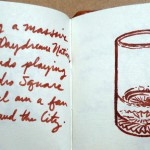 g a massive
Daydream Nation
nds playing
dro Square
I am a fan
und the City.